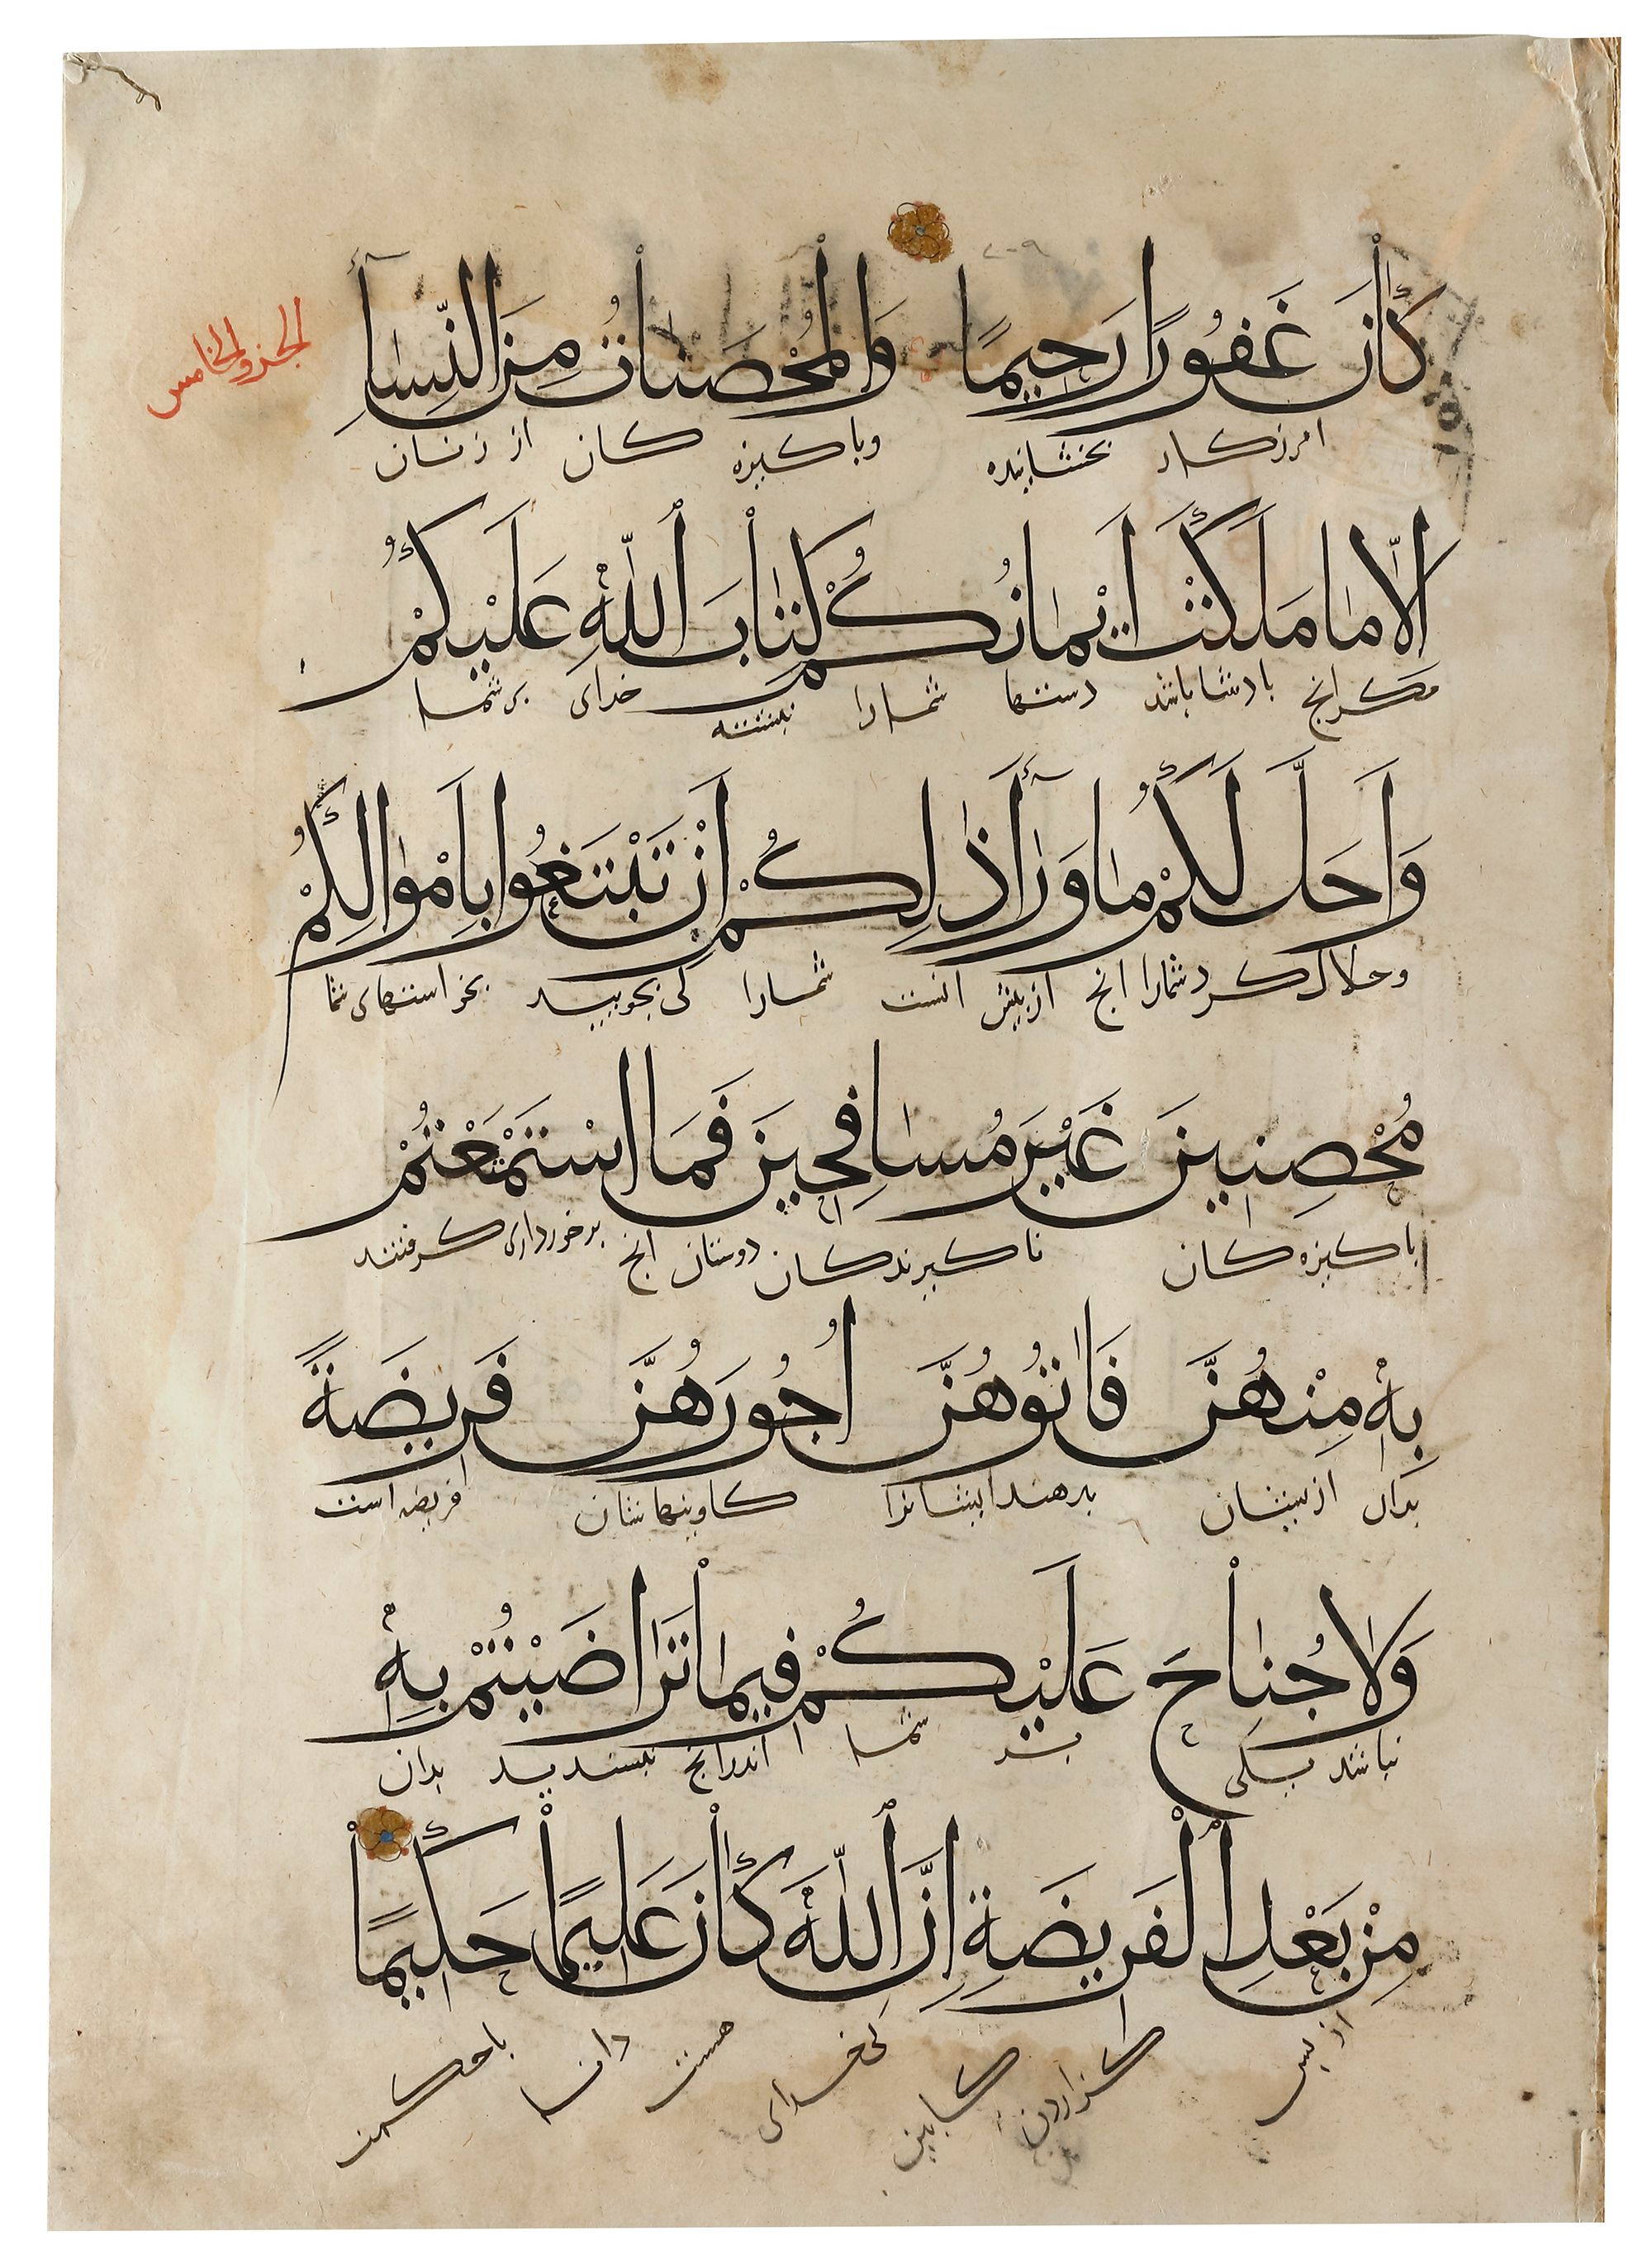 كَانَ غَفُورًا رَحِيمًا وَالْمُحْصَنَاتُ مِنَ النِّسَآءِ
الجزو الخامس
امرزكار بخشاينده وباكيزه كان از زنان
اِلَّا مَا مَلَكَتْ اَيْمَانُكُمْ كِتَابَ اللّٰهِ عَلَيْكُمْ
مكر انج بادشا باشد دستها شمارا نبشته خداى بر شما
وَاُحِلَّ لَكُمْ مَا وَرَآءَ ذٰلِكُمْ اَنْ تَبْتَغُوا بِاَمْوَالِكُمْ
وحلال كرد شمارا انج از پيش انست شمارا كى بجوييد بخواستهاى شما
مُحْصِنِينَ غَيْرَ مُسَافِحِينَ فَمَا اسْتَمْتَعْتُمْ
باكيزه كان نا كيرندكان دوستان انج برخوردارى كرفتند
بِهِ مِنْهُنَّ فَاٰتُوهُنَّ اُجُورَهُنَّ فَرِيضَةً
بدان ازيشان بدهند ايشانرا كاوينهاشان فريضه است
وَلَا جُنَاحَ عَلَيْكُمْ فِيمَا تَرَاضَيْتُمْ بِهِ
نباشد بزكى بر شما اندرانج بسنديد بدان
مِنْ بَعْدِ الْفَرِيضَةِ اِنَّ اللّٰهَ كَانَ عَلِيمًا حَكِيمًا
از پس كزاردن كابين كى خداى هست دانا باحكمت